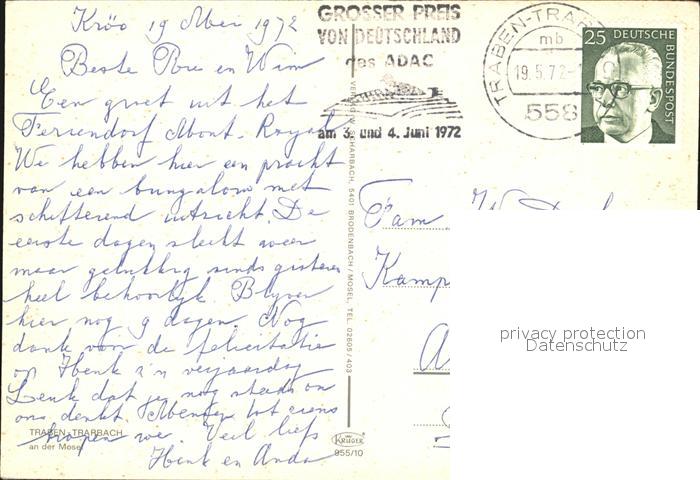 Kröv 19 Mei 1972
Beste Riu en Wim
Een groet uit het
Feriendorf Mont. Royal
We hebben hier een pracht
van een bungalow met
schitterend uitzicht. De
eerste dagen slecht weer
maar gelukkig sinds gisteren
heel behoorlijk. Blijven
hier nog 9 dagen. Nog
dank voor de felicitatie
op Henk z'n verjaardag
Leuk dat je nog steeds on
ons denkt. tot eens
hopen we. Veel liefs
Henk en Anda
TRABEN-TRARBACH
an der Mosel
GROSSER PREIS
VON DEUTSCHLAND
des ADAC
am 3. und 4. Juni 1972
TRABEN-TRAR
mb
19.5.72
558
25 DEUTSCHE
BUNDESPOST
VERLAG W. SCHARBACH, 5401 BRODENBACH / MOSEL, TEL. 02605/403
KRÜGER
955/10
Fam.
Kamp
privacy protection
Datenschutz